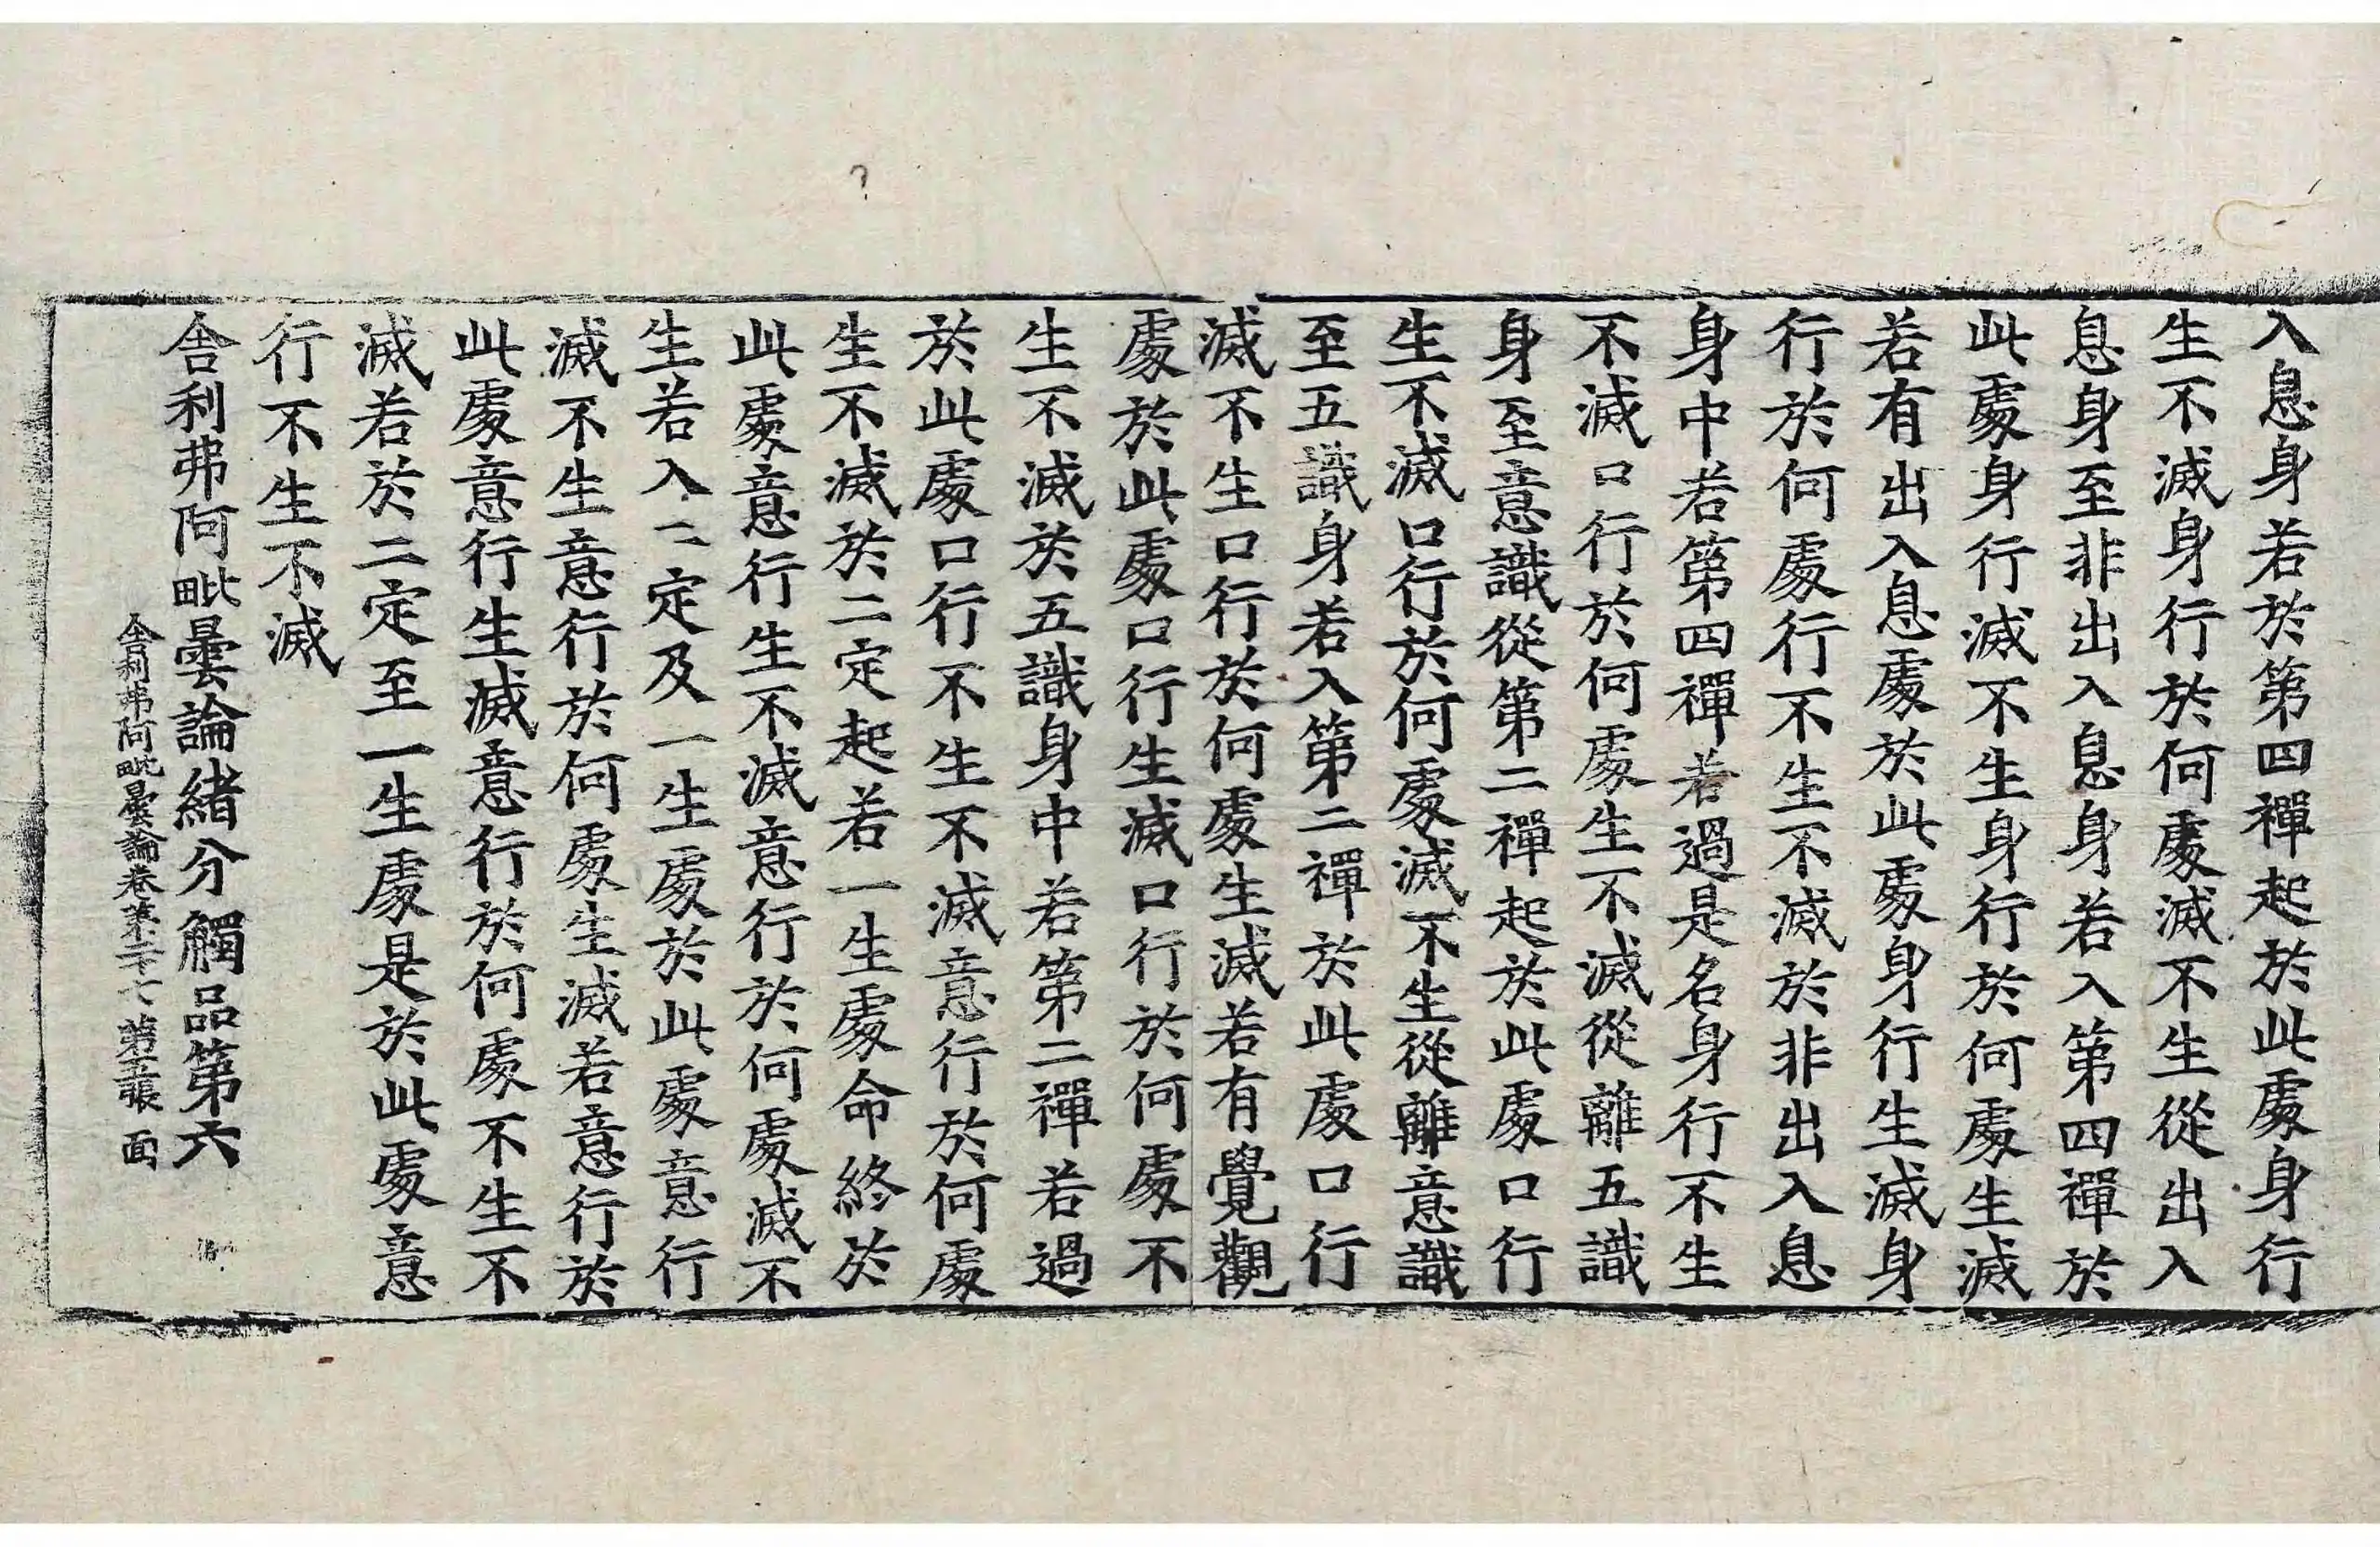 入息身若於第四禪起於此處身行
生不滅身行於何處滅不生從出入
息身至非出入息身若入第四禪於
此處身行滅不生身行於何處生滅
若有出入息處於此處身行生滅身
行於何處行不生不滅於非出入息
身中若第四禪若過是名身行不生
不滅口行於何處生不滅從離五識
身至意識從第二禪起於此處口行
生不滅口行於何處滅不生從離意識
至五識身若入第二禪於此處口行
滅不生口行於何處生滅若有覺觀
處於此處口行生滅口行於何處不
生不滅於五識身中若第二禪若過
於此處口行不生不滅意行於何處
生不滅於二定起若一生處命終於
此處意行生不滅意行於何處滅不
生若入二定及一生處於此處意行
滅不生意行於何處生滅若意行於
此處意行生滅意行於何處不生不
滅若於二定至一生處是於此處意
行不生不滅
舍利弗阿毗曇論緒分觸品第六
舍利弗阿毗曇論卷第二十七 第五張 面